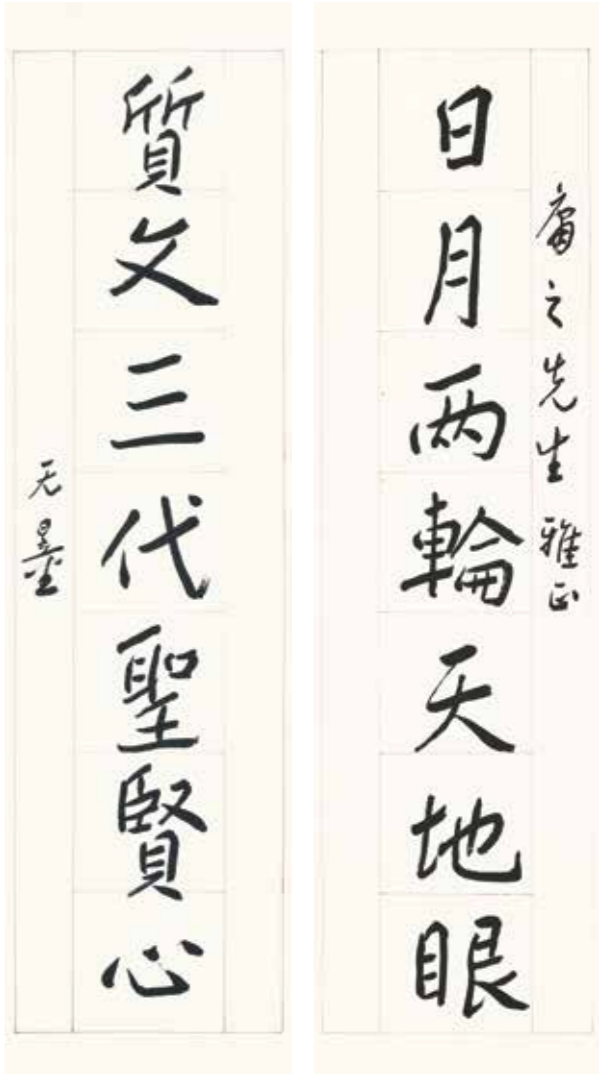 庸之先生雅正
日月两輪天地眼
質文三代聖賢心
无量